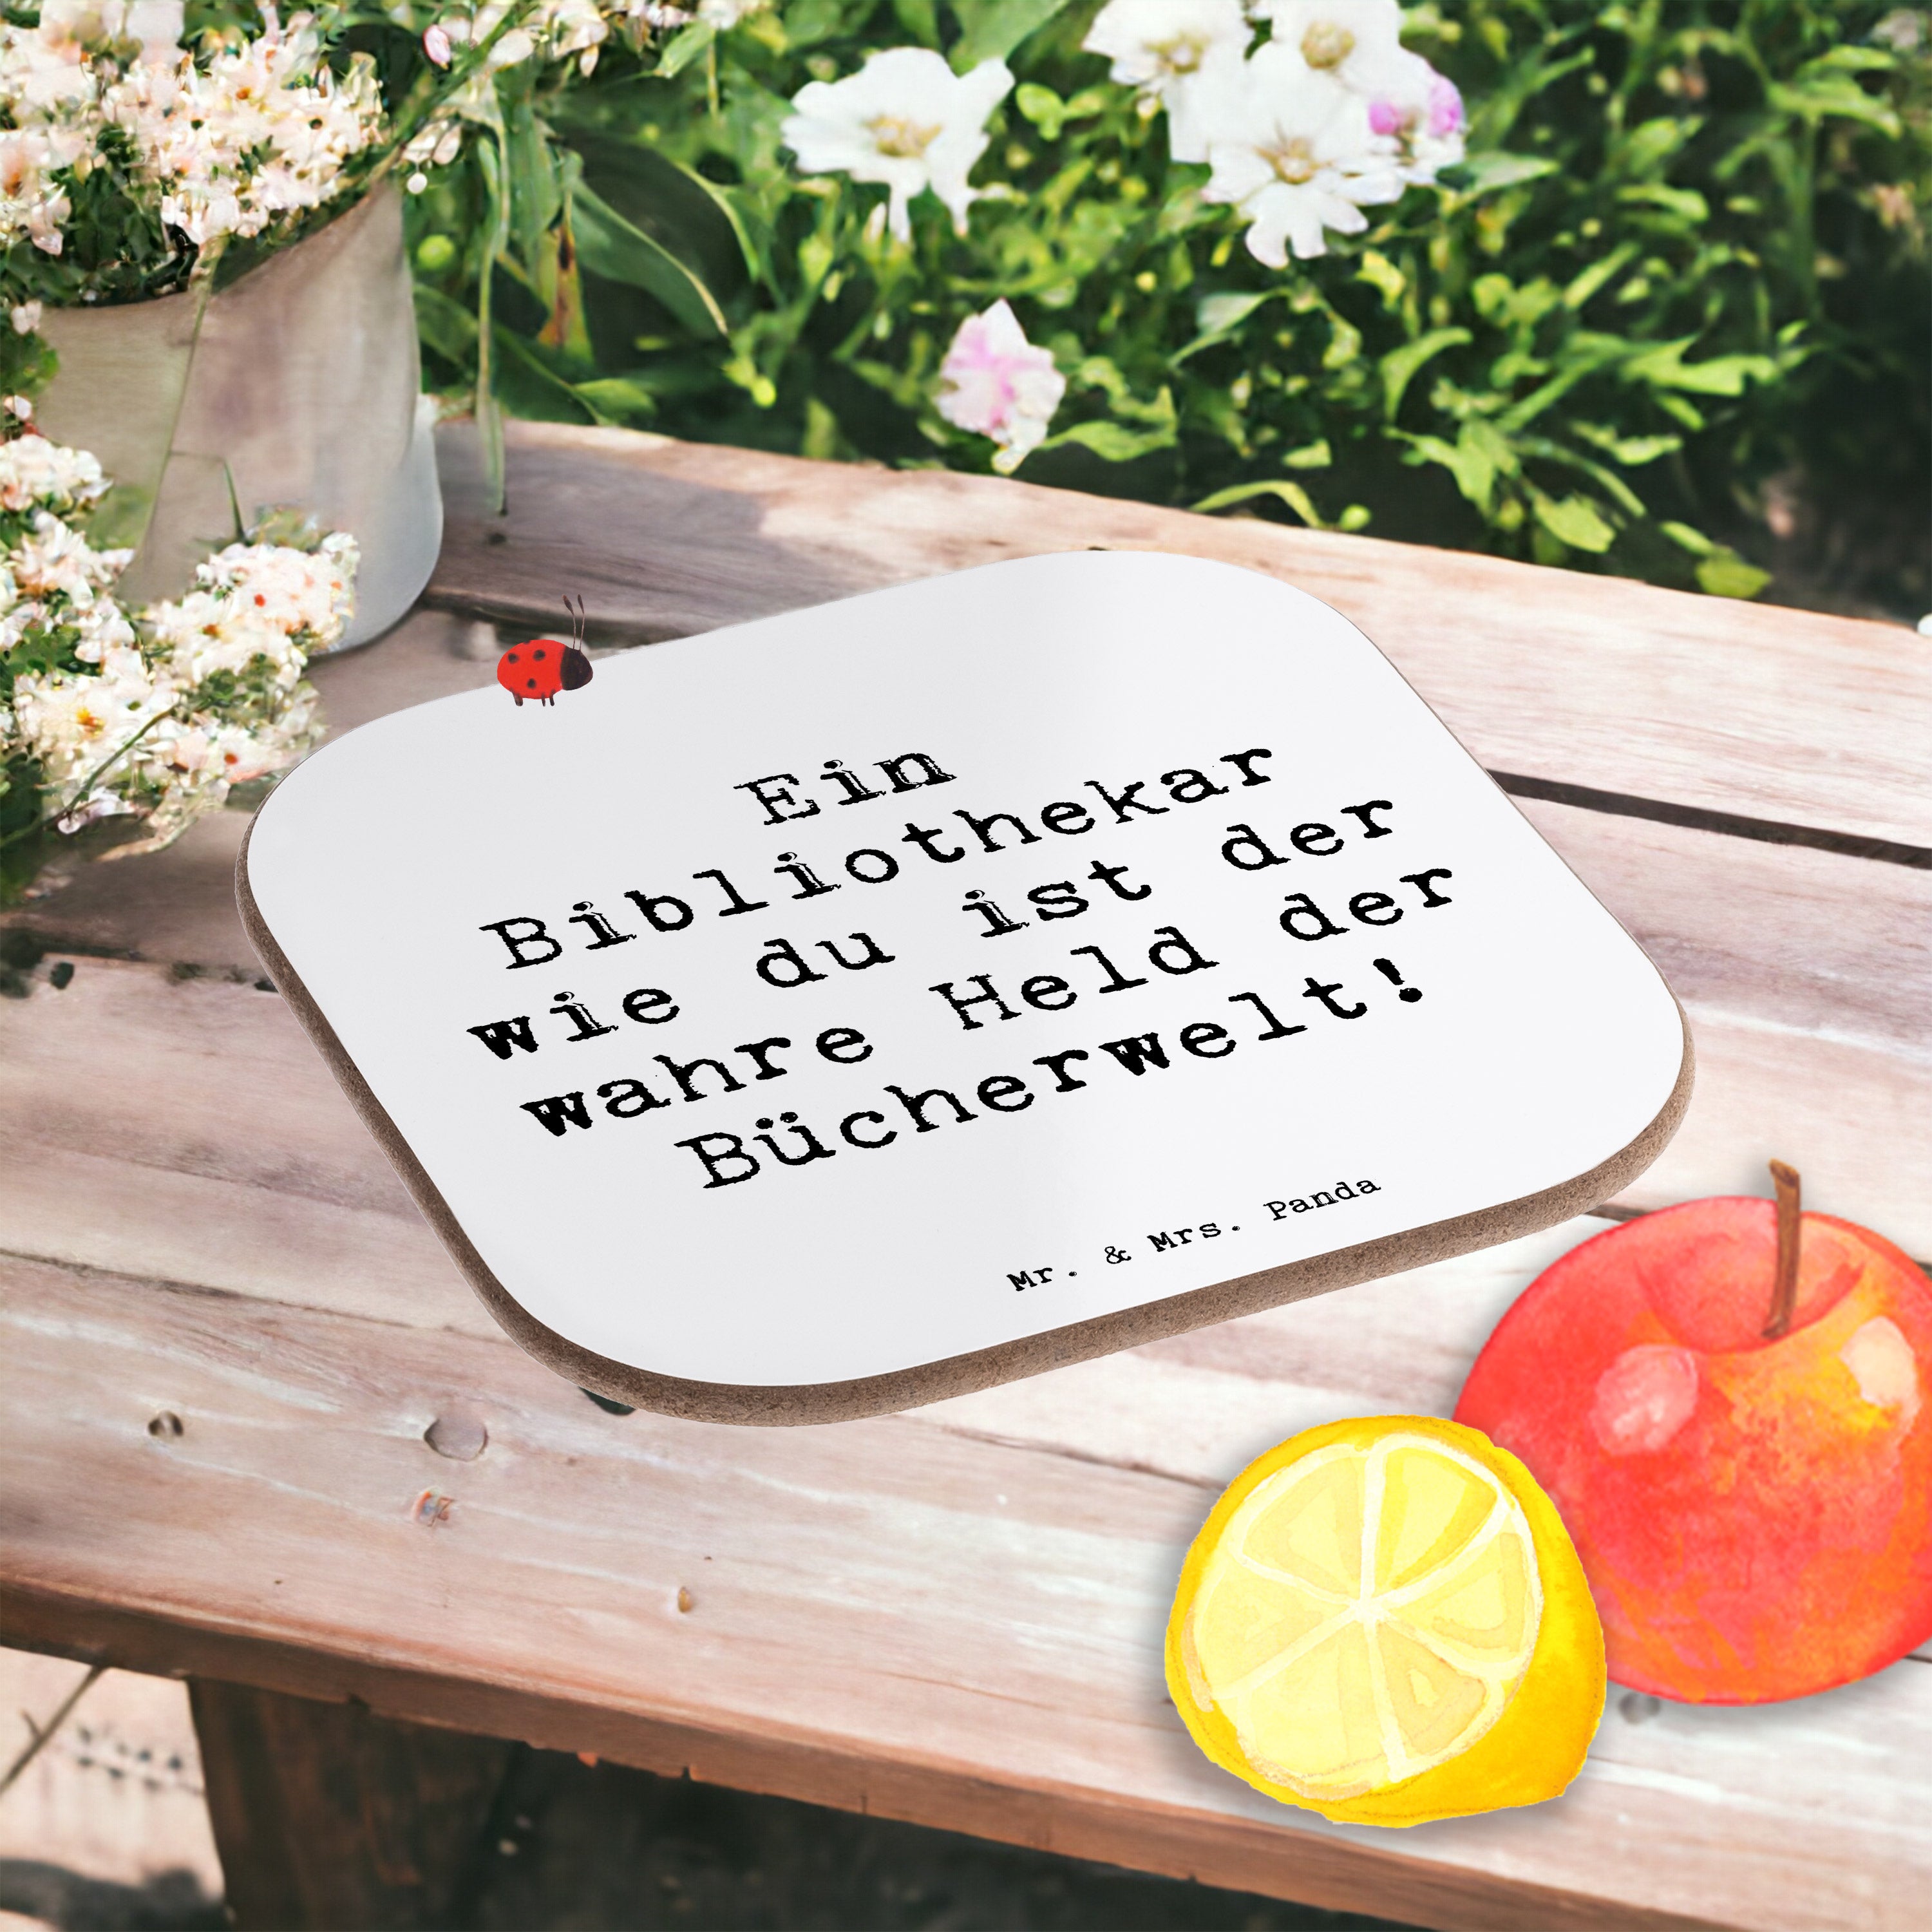 Ein
Bibliothekar
wie du ist der
wahre Held der
Bücherwelt!
Mr. & Mrs. Panda